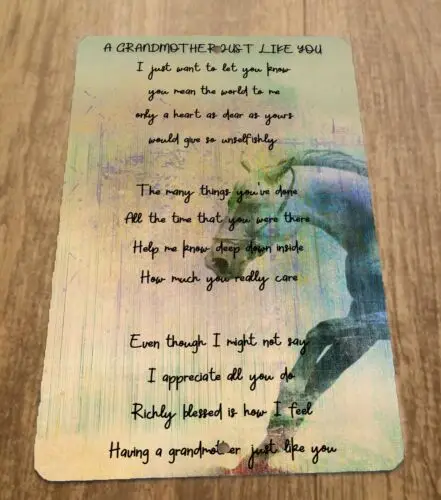 A GRANDMOTHER JUST LIKE YOU
I just want to let you know
you mean the world to me
only a heart as dear as yours
would give so unselfishly
The many things you've done
All the time that you were there
Help me know deep down inside
How much you really care
Even though I might not say
I appreciate all you do
Richly blessed is how I feel
Having a grandmother just like you